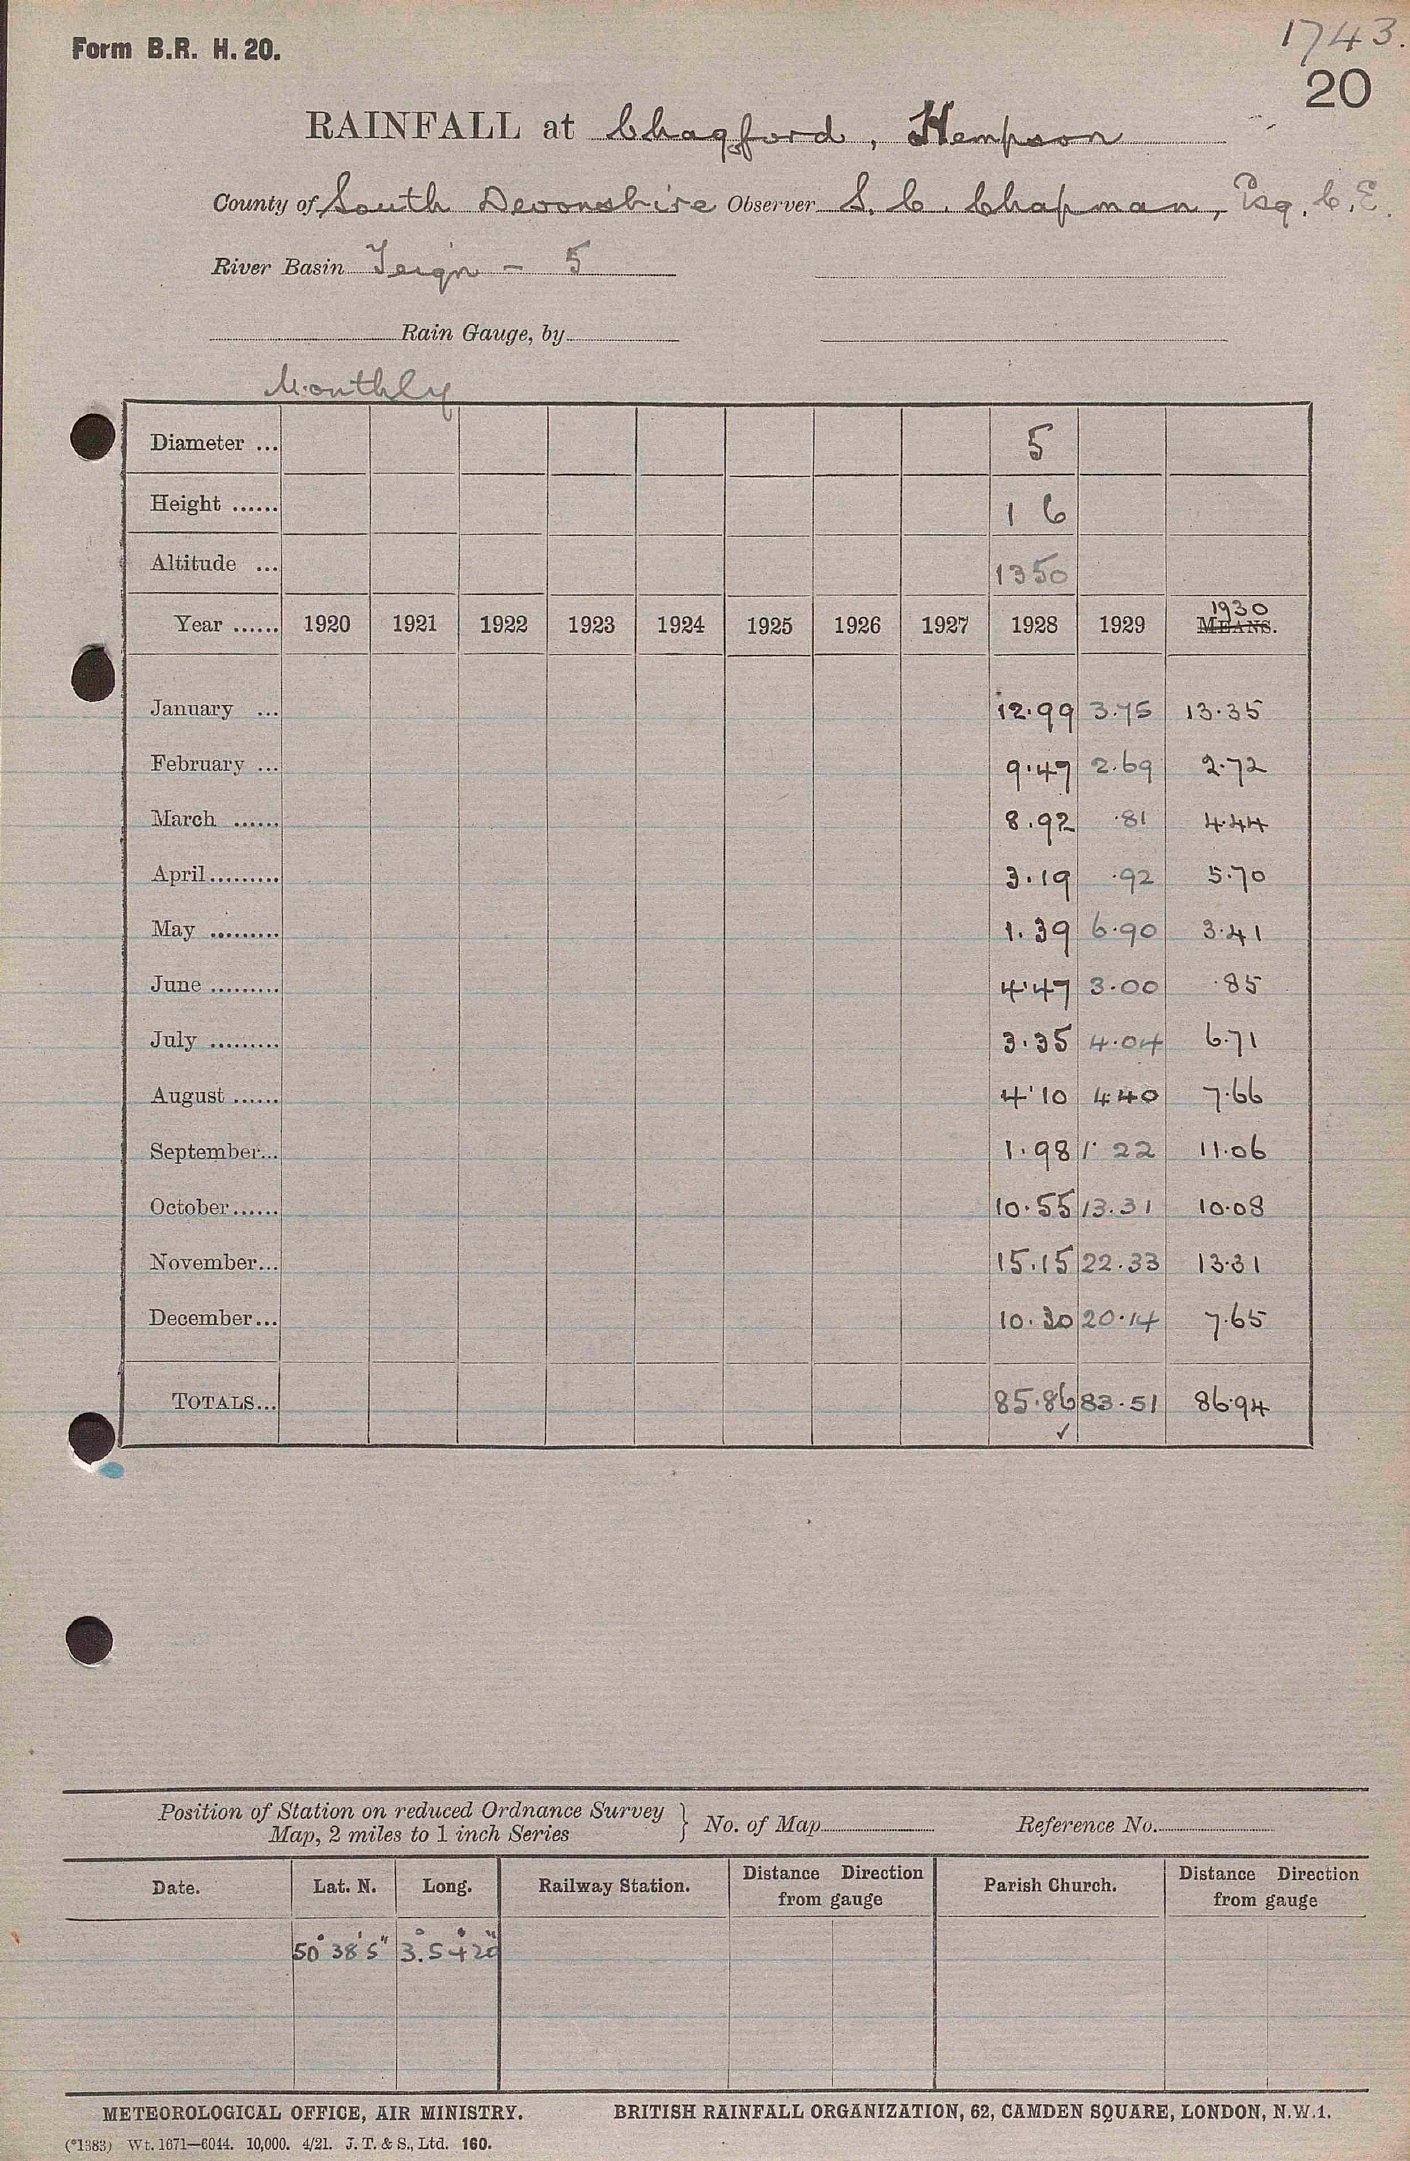 Form B.R. H. 20.
1743.
20
RAINFALL at Chagford, Hempson
County of South Devonshire Observer S. C. Chapman, Esq. C.E.
River Basin Teign - 5
Rain Gauge, by
Monthly
Diameter ... 5
Height ...... 1 6
Altitude ... 1350
Year ...... 1920 1921 1922 1923 1924 1925 1926 1927 1928 1929 1930 MEANS.
January ... 12.99 3.75 13.35
February ... 9.47 2.69 2.72
March ...... 8.92 .81 4.44
April......... 3.19 .92 5.70
May ......... 1.39 6.90 3.41
June ......... 4.47 3.00 .85
July ......... 3.35 4.04 6.71
August ...... 4.10 4.40 7.66
September... 1.98 1.22 11.06
October...... 10.55 13.31 10.08
November... 15.15 22.33 13.31
December... 10.30 20.14 7.65
TOTALS... 85.86 83.51 86.94
✓
Position of Station on reduced Ordnance Survey
Map, 2 miles to 1 inch Series } No. of Map Reference No.
Date. Lat. N. Long. Railway Station. Distance Direction from gauge Parish Church. Distance Direction from gauge
50° 38' 5" 3° 54' 20"
METEOROLOGICAL OFFICE, AIR MINISTRY. BRITISH RAINFALL ORGANIZATION, 62, CAMDEN SQUARE, LONDON, N.W.1.
(*1383) Wt. 1671—6044. 10,000. 4/21. J. T. & S., Ltd. 160.